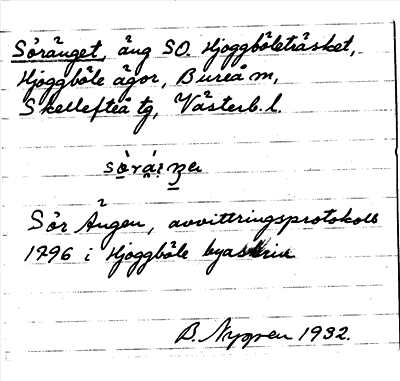 Söränget, äng SO. Hjoggböleträsket,
Hjoggböle ägor, Bureå sn,
Skellefteå tg, Västerb. l.
Sör Ängen, avvittringsprotokoll
1796 i Hjoggböle byaskrin
B. Nyppen 1932.